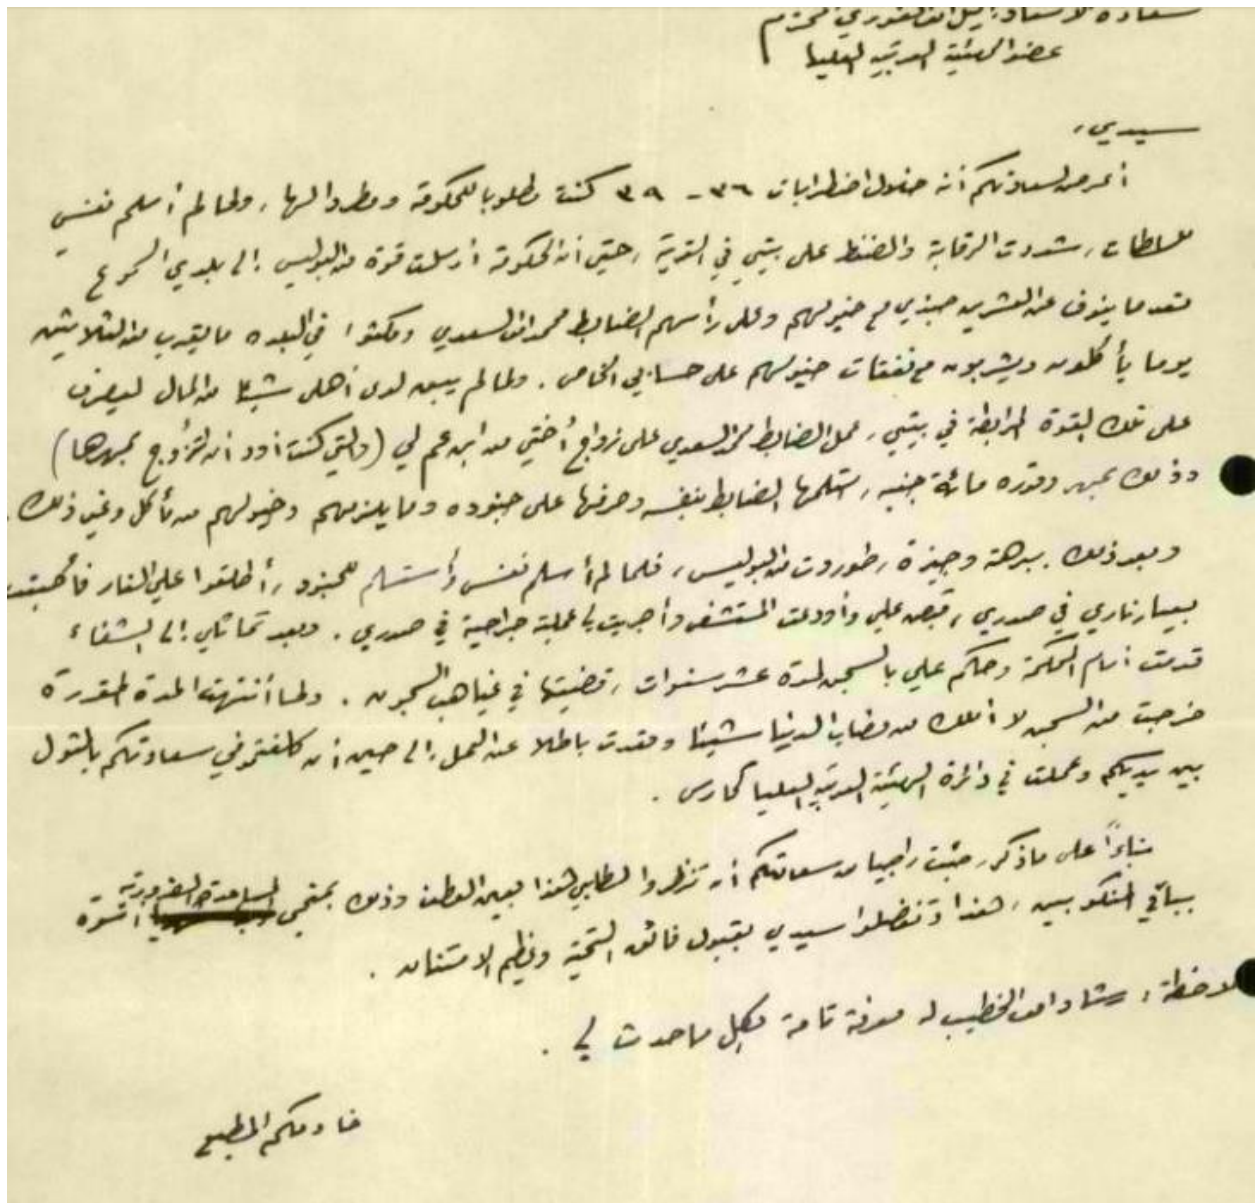 سعادة الاستاذ اميل افندي الغوري المحترم
عضو الهيئة العربية العليا
سيدي،
أعرض لسعادتكم أنه خلال اضطرابات ٣٦ - ٣٩ كنت مطلوبا للحكومة ومطرودا لها، ولما لم أسلم نفسي
للسلطات، شددت الرقابة والضغط على بيتي في القرية، حتى أن الحكومة أرسلت قوة من البوليس إلى بلدي السموع
تعد ما ينوف عن العشرين جندي مع خيولهم وعلى رأسهم الضابط محمد افندي السعدي ومكثوا في البلده ما يقرب من الثلاثين
يوما يأكلون ويشربون مع نفقات خيولهم على حسابي الخاص. ولما لم يبق لدى أهلي شيئا من المال ليصرف
على تلك القوة المرابطة في بيتي، عمل الضابط محمد السعدي على زواج أختي من ابن عم لي (والتي كنت أود أن أتزوج بمهرها)
وذلك بمهر وقدره مائة جنيه، استلمها الضابط بنفسه وصرفها على جنوده وما يلزمهم وخيولهم من مأكل وغير ذلك.
وبعد ذلك ببرهة وجيزة، طوردت من البوليس، فلما لم أسلم نفسي وأستسلم للجنود، أطلقوا علي النار فأصبت
بعيار ناري في صدري، قبض علي وأودعت المستشفى وأجريت لي عملية جراحية في صدري. وبعد تماثلي إلى الشفاء
قدمت أمام المحكمة وحكم علي بالسجن لمدة عشر سنوات، قضيتها في غياهب السجون. ولما أنتهت المدة المقررة
خرجت من السجن لا أملك من حطاب الدنيا شيئا وقعدت باطلا عن العمل إلى حين أن كلفتموني سعادتكم بالمثول
بين يديكم وعملت في دائرة الهيئة العربية العليا كحارس.
بناءاً على ما ذكر، جئت راجيا من سعادتكم أن تنظروا لطلبي هذا بعين العطف وذلك بمنحي المساعدة الضرورية أسوة
بباقي المنكوبين، هذا وتفضلوا سيدي بقبول فائق التحية وعظيم الامتنان.
ملاحظة: رشاد افندي الخطيب له معرفة تامة بكل ما حدث لي.
خادمكم المطيع